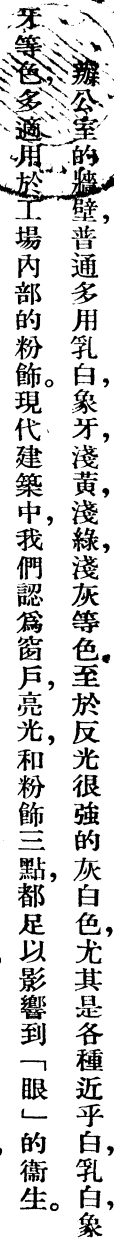 辦公室的牆壁，普通多用乳白，象牙，淺黃，淺綠，淺灰等色。至於反光很強的灰白色，尤其是各種近乎白，乳白，象
牙等色，多適用於工場內部的粉飾。現代建築中，我們認爲窗戶，亮光，和粉飾三點，都足以影響到「眼」的衞生。